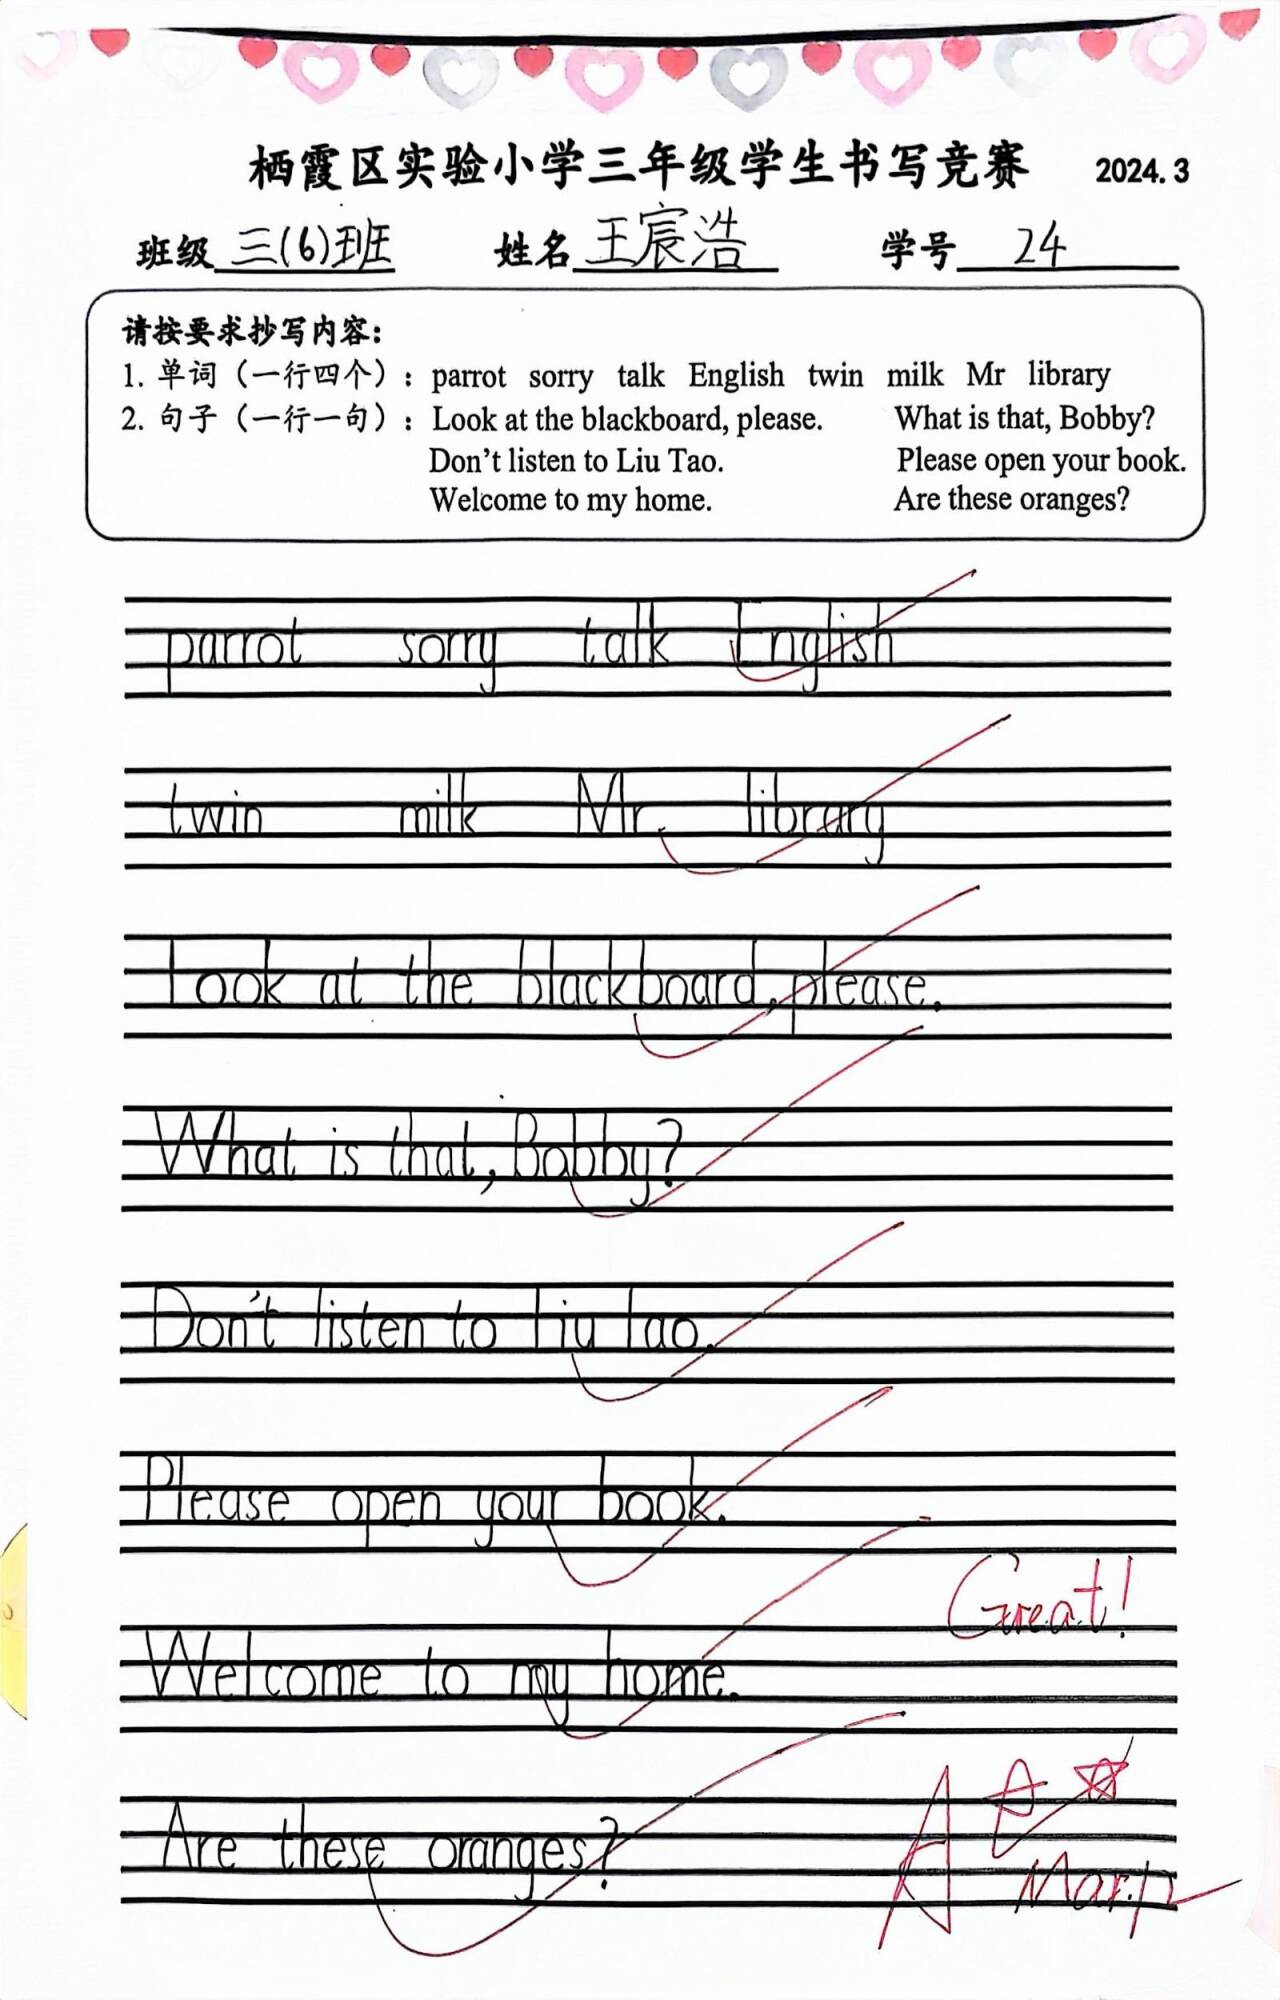 栖霞区实验小学三年级学生书写竞赛 2024.3
班级 三(6)班 姓名 王宸浩 学号 24
请按要求抄写内容：
1. 单词（一行四个）：parrot sorry talk English twin milk Mr library
2. 句子（一行一句）：Look at the blackboard, please. What is that, Bobby?
Don't listen to Liu Tao. Please open your book.
Welcome to my home. Are these oranges?
parrot sorry talk English
twin milk Mr. library
Look at the blackboard, please.
What is that, Bobby?
Don't listen to Liu Tao.
Please open your book.
Great!
Welcome to my home.
Are these oranges?
A